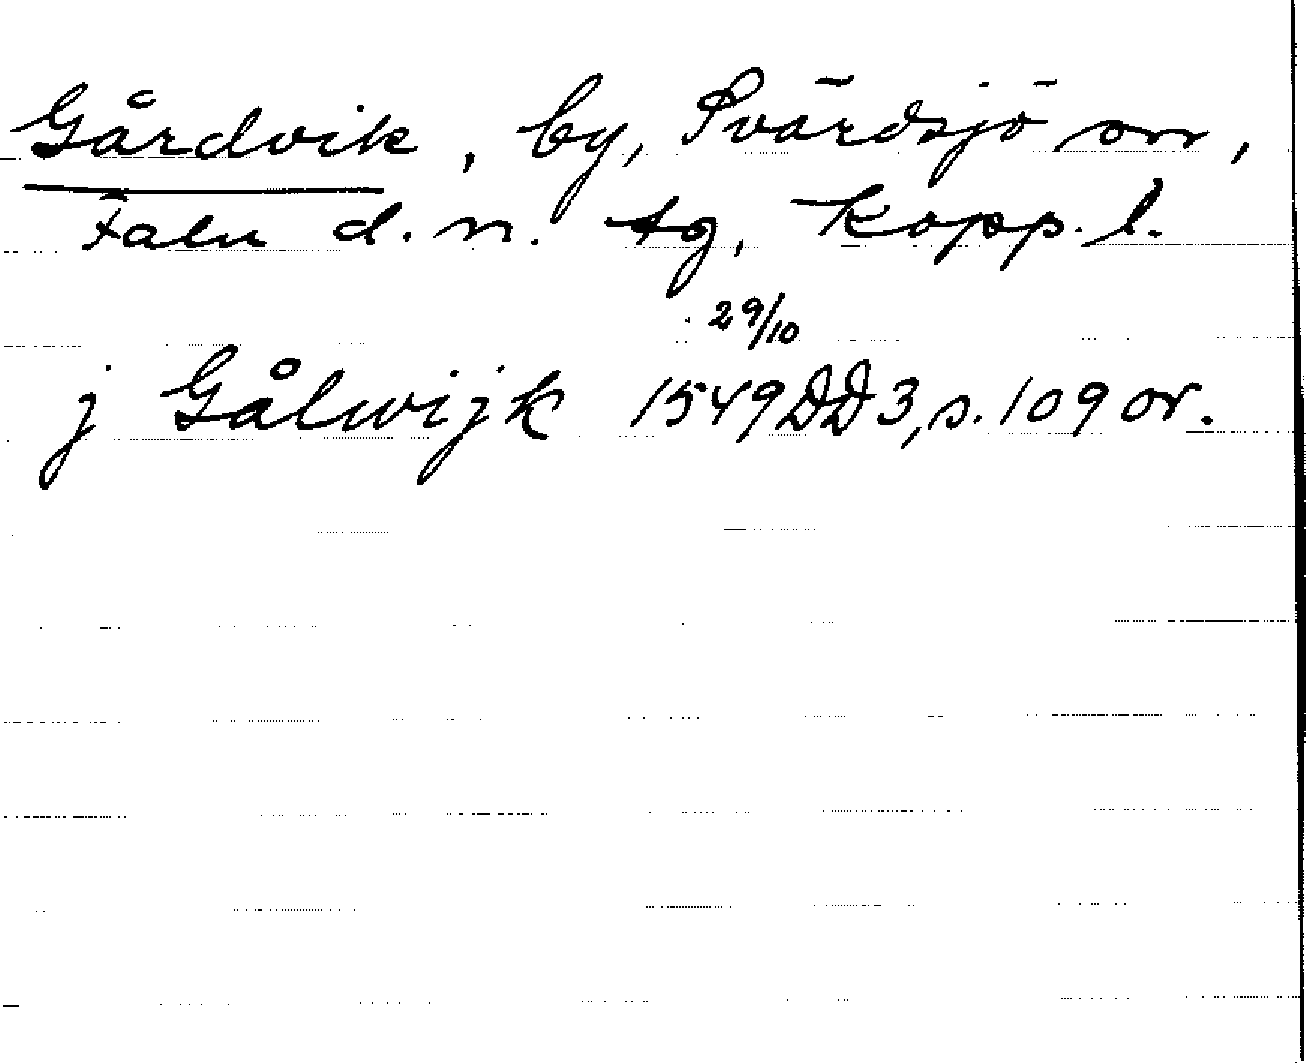 Gårdvik, by, Svärdsjö sn,
Falu d. n. tg, Kopp. l.
29/10
j Gålwijk 1549 DD3, s. 109 or.